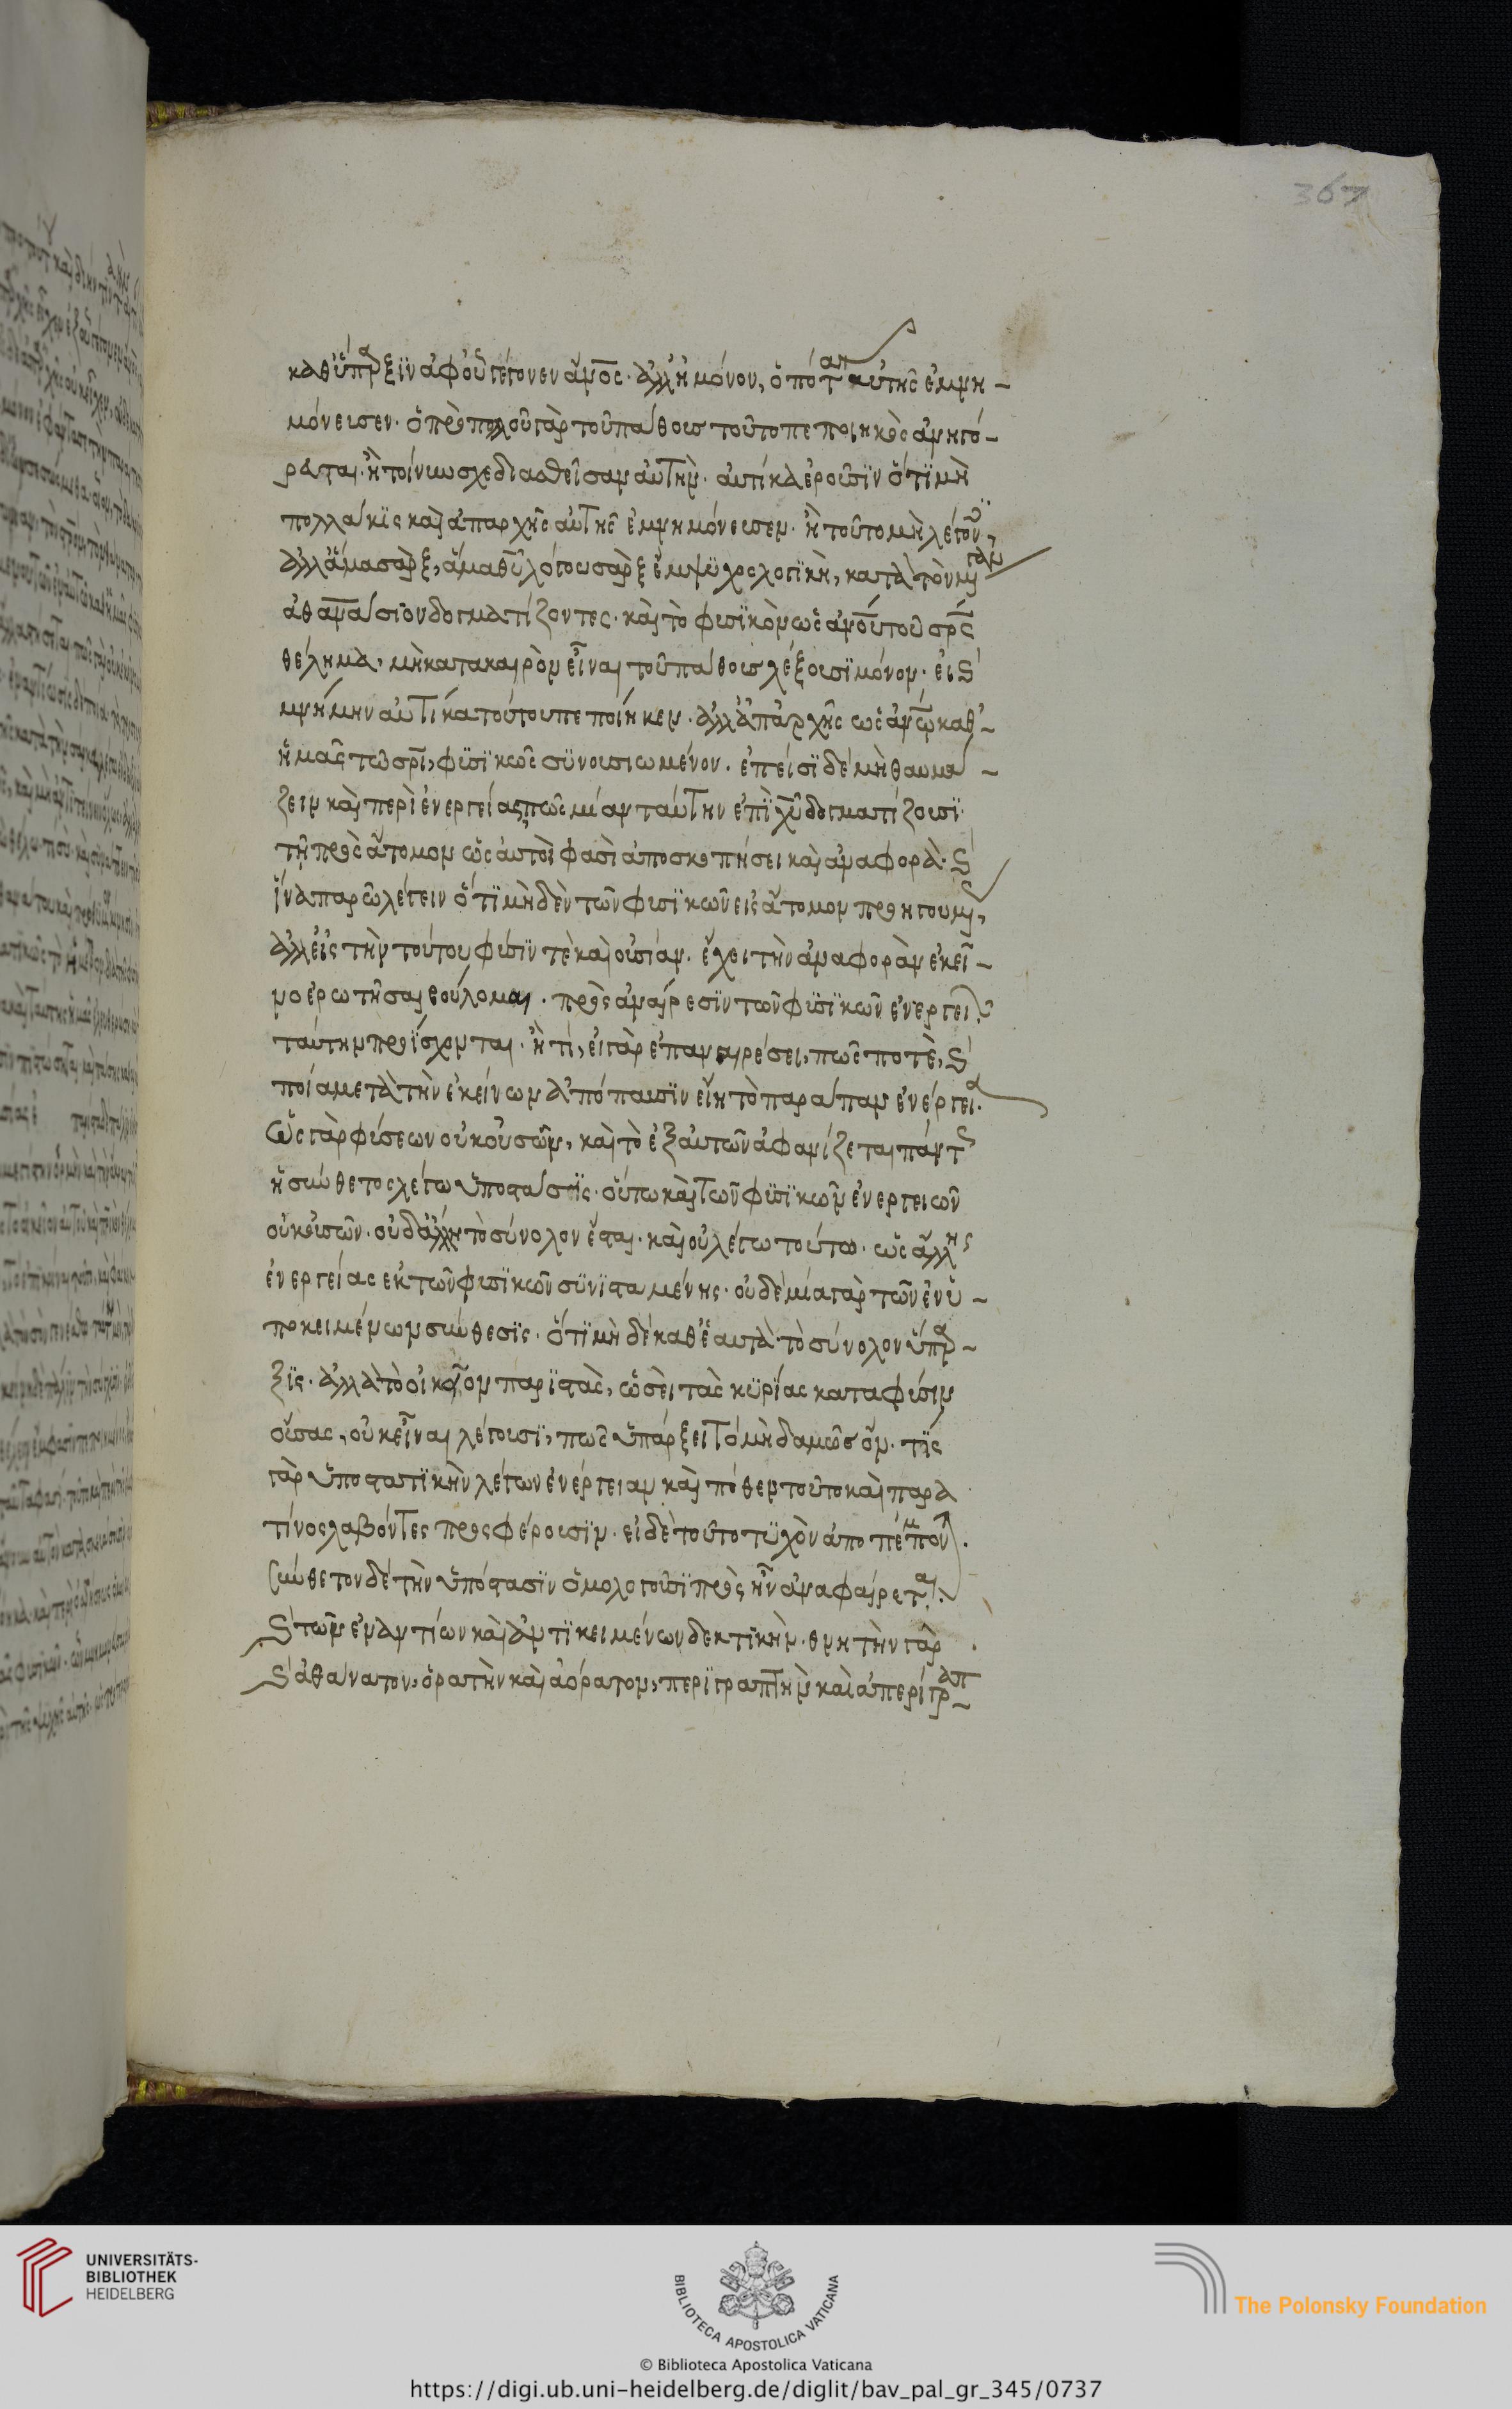 367
καθ' ὕπαρξϊν ἀφ' οὗ γέγονεν ἄνος· ἀλλ' ἢ μόνον, ὁπόταν αὐτῆς ἐμνη-
μόνευσεν· ὁ πρὸ πολλοῦ γὰρ τοῦ πάθους τοῦτο πεποιηκὼς ἀνηγό-
ρευται· ἢ τοίνυν σχεδιασθεῖσαν αὐτὴν· αὐτίκα ἐροῦσϊν ὅτϊ μὴ
πολλάκϊς καὶ ἀπαρχῆς αὐτῆς ἐμνημόνευσεν· ἢ τοῦτο μὴ λέγον
ἀλλ' ἅμα σὰρξ, ἅμα θῦ λόγου σὰρξ ἔμψϋχος λογϊκὴ, κατὰ τὸν μέγαν
ἀθανάσϊον δογματίζοντες· καὶ τὸ φυσϊκὸν ὡς ἀνοῦ τοῦ σρς
θέλημα, μὴ κατα καιρὸν εἶναι τοῦ πάθους λέξουσϊ μόνον· εἰ κ
μνήμην αὐτίκα τούτου πεποίηκεν· ἀλλ' ἀπαρχῆς ὡς ἀνω καθ'-
ἡμᾶς τῶ σρι, φϋσϊκῶς σϋνουσιωμένον. ἔπεισϊ δέ μὴ θαυμά-
ζειν καὶ περὶ ἐνεργείας, πῶς μίαν ταύτην ἐπὶ χῦ δογματίζουσϊ·
τῆ πρὸς ἄτομον ὡς αὐτοὶ φασὶ ἀποσκοπήσει καὶ ἀναφορᾶ· κ
ἵνα παρῶ λέγειν ὅτϊ μὴδὲν τῶν φυσϊκῶν εἰς ἄτομον προηγουμ,
ἀλλ' εἰς τὴν τούτου φύσϊν τὲ καὶ οὐσίαν. ἔχοι τὴν ἀναφορὰν ἐκεῖ-
νο ἐρωτῆσαι βούλομαι. πρὸς ἀναίρεσϊν τῶν φϋσϊκῶν ἐνεργειῶν
ταύτην προίσχονται. ἢ τί, εἰ γὰρ ἐπαναιρέσει, πῶς ποτὲ, κ
ποία μετὰ τὴν ἐκείνων ἀπόπαυσϊν εἴη τὸ παράπαν ἐνέργεια.
ὡς γὰρ φύσεων οὐκ οὐσῶν, καὶ τὸ ἐξ αὐτῶν ἀφανίζεται πάντως
ἡ σύνθετος λέγω ὑπόστασϊς· οὕτω καὶ τῶν φϋσϊκῶν ἐνεργειῶν
οὐκ οὐσῶν· οὐδ' ἄλλη τὸ σύνολον ἔσται. καὶ οὐ λέγω τούτω. ὡς ἄλλης
ἐνεργείας ἐκ τῶν φυσϊκῶν σϋνϊσταμένης· οὐδὲ μία γὰρ τῶν ἐν ὑ-
ποκειμένων σύνθεσϊς. ὅτϊ μὴ δὲ καθ' ἑαυτὰ τὸ σύνολον ὕπαρ-
ξϊς. ἀλλὰ τὸ οἰκεῖον παρϊστᾶς, ὡσεὶ τὰς κϋρίας κατα φύσιν
οὔσας, οὐκ εἶναι λέγουσϊ, πῶς ὑπάρξει τὸ μὴδαμῶς ὄν. τϊς
γὰρ ὑποστατϊκὴν λέγων ἐνέργειαν καὶ πόθεν τοῦτο καὶ παρὰ
τίνος λαβόντες προςφέρουσϊν. εἰ δὲ τοῦτο τϋχὸν ἀποπέμπον.
σύνθετον δὲ τὴν ὑπόστασϊν ὁμολογοῦσϊ πρὸς ἣν ἀναφαίρεται.
κ τῶν ἐναντίων καὶ ἀντϊκειμένων δεκτϊκὴν. θνητὴν γὰρ
κ ἀθάνατον, ὁρατὴν καὶ ἀόρατον, περϊγραπτὴν καὶ ἀπερίγραπ-
UNIVERSITÄTS-
BIBLIOTHEK
HEIDELBERG
BIBLIOTECA APOSTOLICA VATICANA
The Polonsky Foundation
© Biblioteca Apostolica Vaticana
https://digi.ub.uni-heidelberg.de/diglit/bav_pal_gr_345/0737